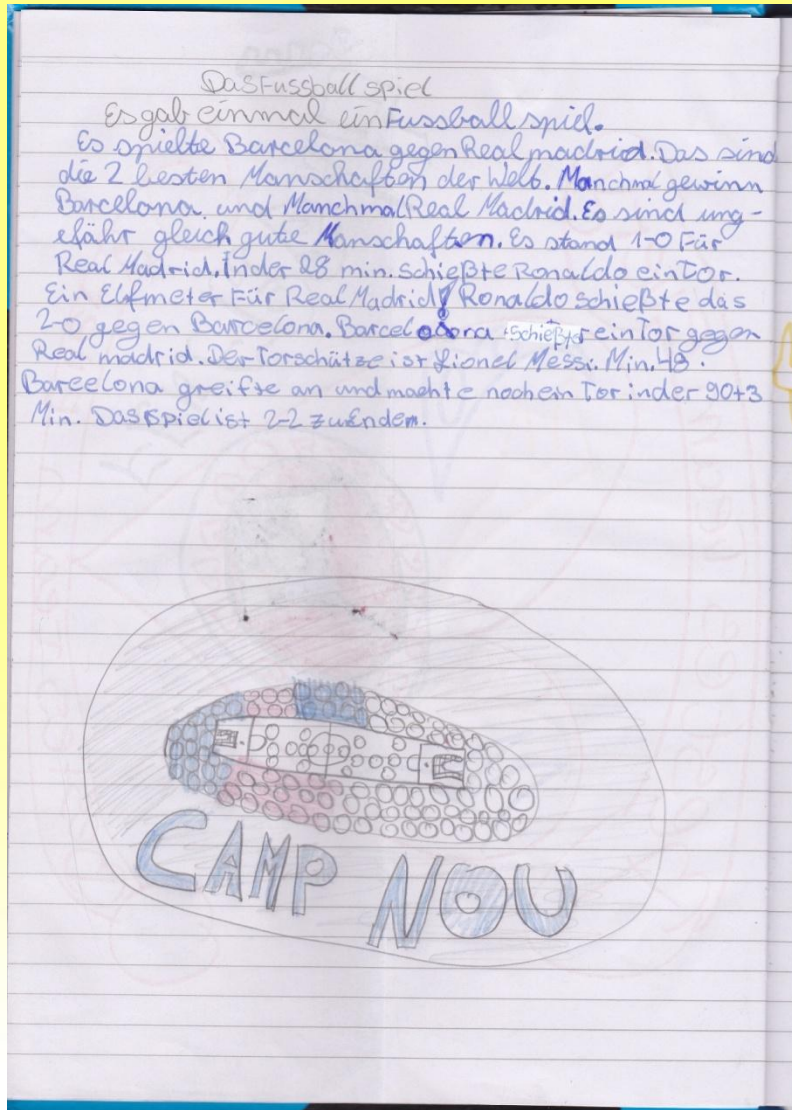 Das Fussballspiel
Es gab einmal ein Fussballspiel.
Es spielte Barcelona gegen Real madrid. Das sind
die 2 besten Manschaften der Welt. Manchmal gewinn
Barcelona und Manchmal Real Madrid. Es sind ung-
efähr gleich gute Manschaften. Es stand 1-0 Für
Real Madrid. In der 28 min. schießte Ronaldo ein Tor.
Ein Elfmeter Für Real Madrid! Ronaldo schießte das
2-0 gegen Barcelona. Barcelona schießte ein Tor gegen
Real madrid. Der Torschütze ist Lionel Messi. Min. 49.
Barcelona greifte an und machte noch ein Tor in der 90+3
Min. Das spiel ist 2-2 zu Endem.
CAMP NOU